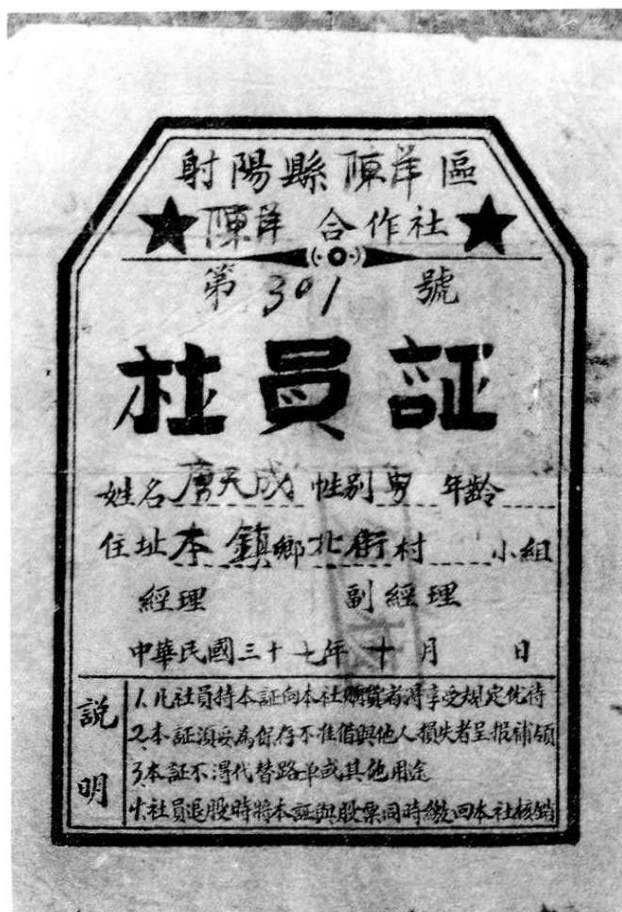 射陽縣陳洋區
陳洋 合作社
第 301 號
社員証
姓名 天成 性別 男 年齡
住址 本鎮鄉北街村 小組
經理 副經理
中華民國三十七年十月 日
説明
1.凡社員持本証向本社購貨者得享受規定优待
2.本証須妥為保存不准借與他人損失者呈报補領
3.本証不得代替路单或其他用途
4.社員退股時將本証與股票同時繳回本社核銷